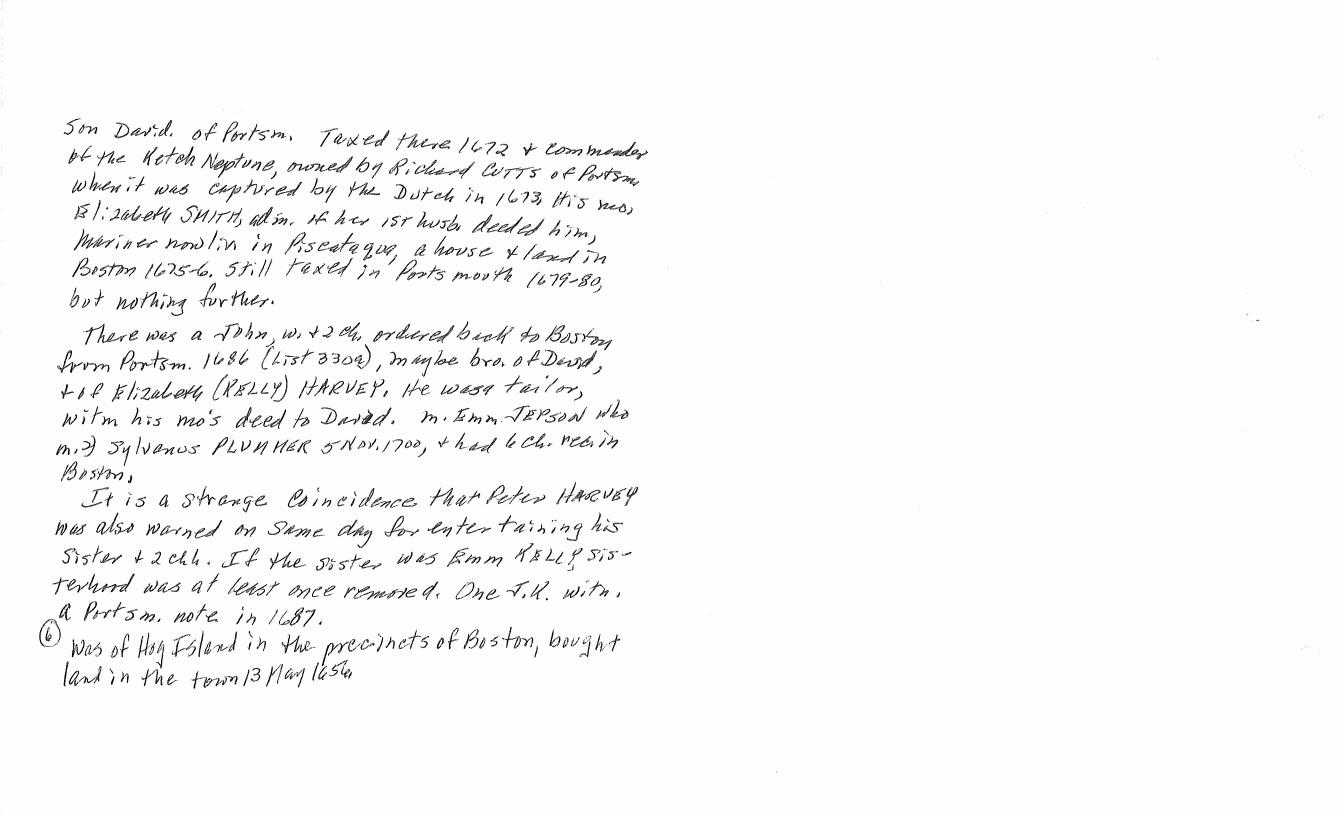 Son David. of Portsm. Taxed there 1672 + commander
of the Ketch Neptune, owned by Richard CUTTS of Portsm,
when it was captured by the Dutch in 1673, His mo,
Elizabeth SMITH, adm. of her 1ST husb. deeded him,
mariner now liv in Piscataqua, a house + land in
Boston 1675-6. Still taxed in Portsmouth 1679-80,
but nothing further.
There was a John, w. + 2 ch. ordered back to Boston
from Portsm. 1686 (List 330a), maybe bro. of David,
+ of Elizabeth (KELLY) HARVEY. He was a tailor,
witn his mo's deed to David. m. Emm JEPSON who
m. 2) Sylvanus PLUMMER 5 NOV. 1700, + had 6 ch. rec. in
Boston,
It is a strange coincidence that Peter HARVEY
was also warned on same day for entertaining his
sister + 2 chh. If the sister was Emm KELLY, sis-
terhood was at least once removed. One J.K. witn.
a Portsm. note in 1687.
(6) Was of Hog Island in the precincts of Boston, bought
land in the town 13 May 1656